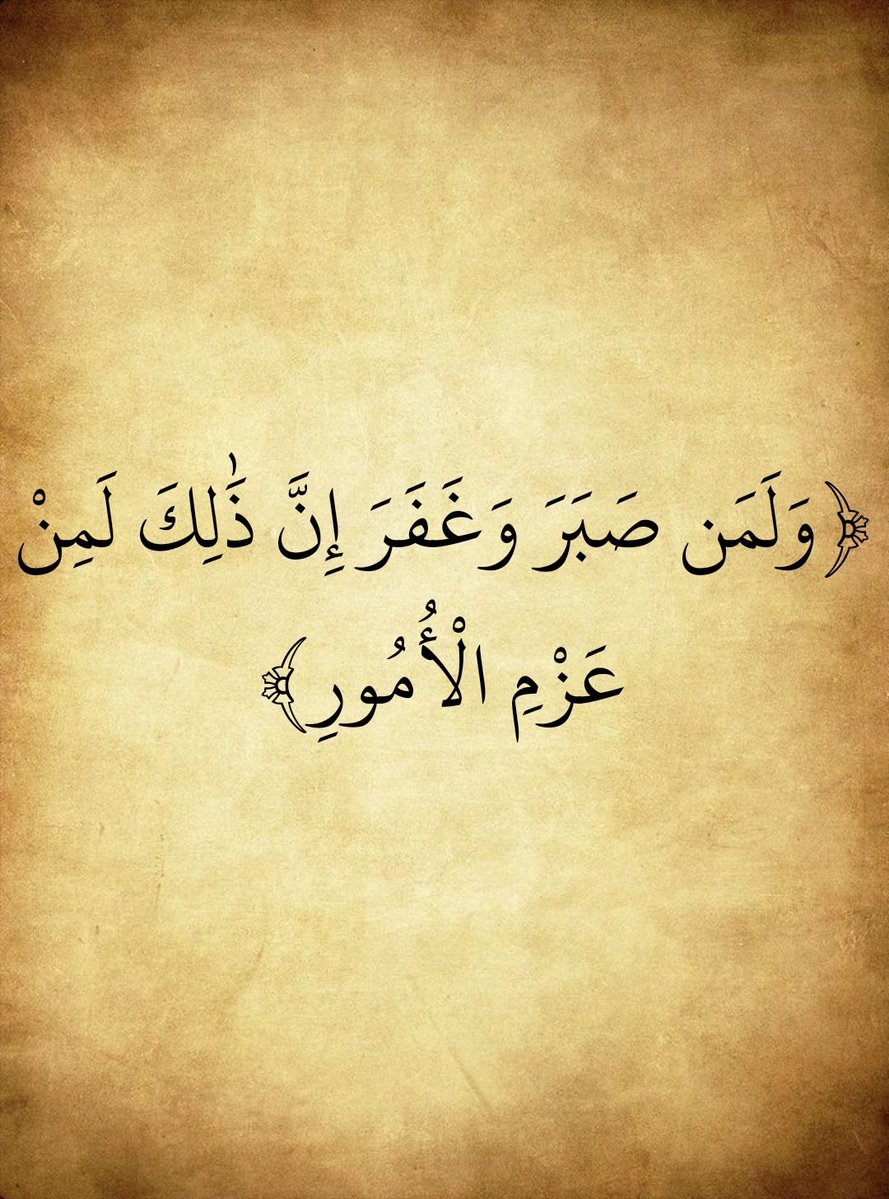 ﴿وَلَمَن صَبَرَ وَغَفَرَ إِنَّ ذَٰلِكَ لَمِنْ
عَزْمِ الْأُمُورِ﴾